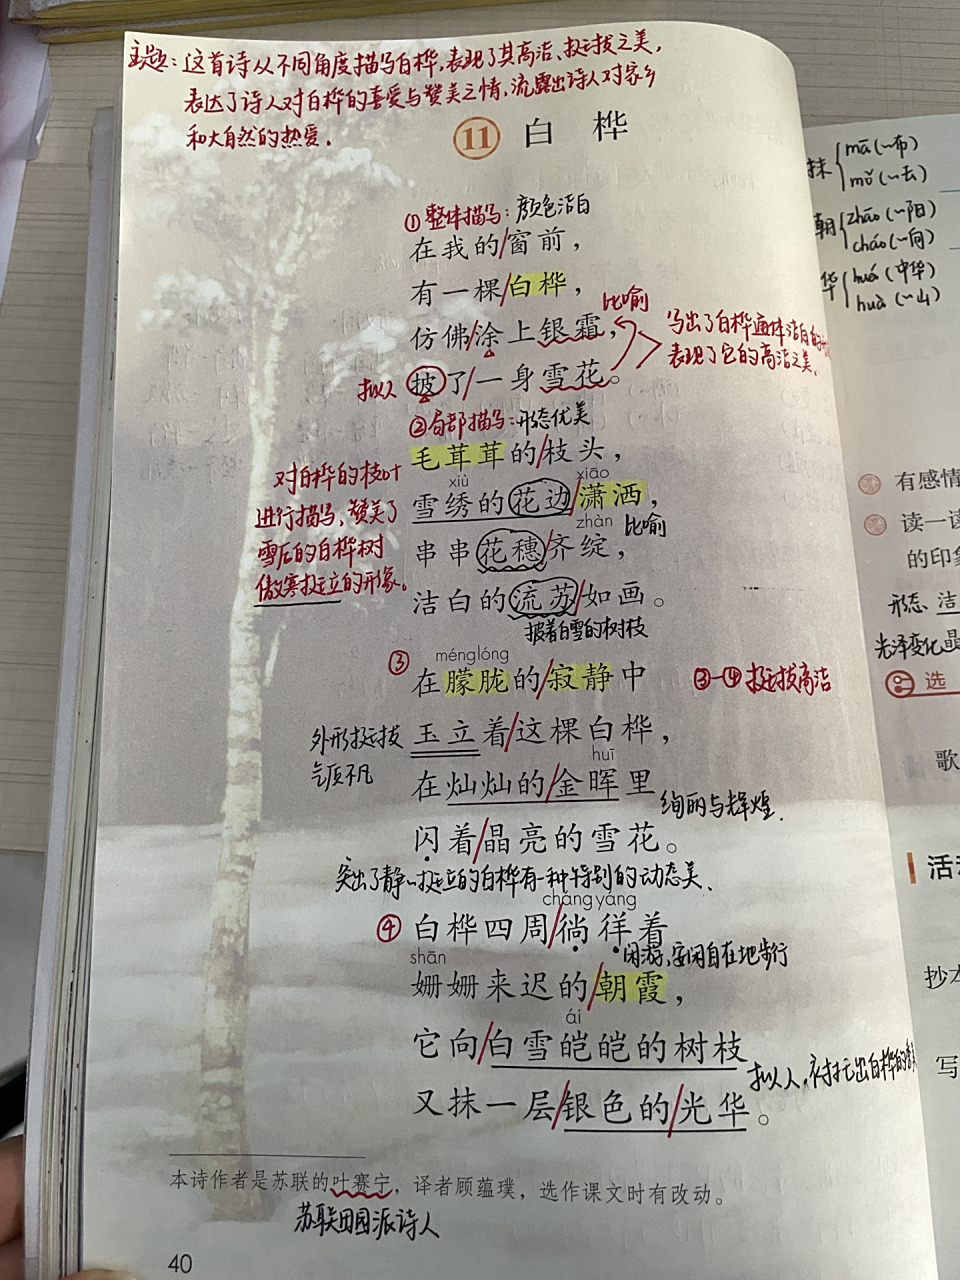 主题：这首诗从不同角度描写白桦，表现了其高洁、挺拔之美，
表达了诗人对白桦的喜爱与赞美之情，流露出诗人对家乡
和大自然的热爱。
11 白桦
①整体描写：颜色洁白
在我的/窗前，
有一棵/白桦，
比喻
仿佛/涂上银霜，
写出了白桦通体洁白的
表现了它的高洁之美、
拟人
披了/一身雪花。
②局部描写：形态优美
毛茸茸的/枝头，
对白桦的枝叶
进行描写，赞美了
雪后的白桦树
傲寒挺立的形象。
xiù xiāo
雪绣的花边/潇洒，
zhàn 比喻
串串花穗/齐绽，
洁白的流苏/如画。
披着白雪的树枝
ménglóng
③
在朦胧的/寂静中
③—④挺拔高洁
外形挺拔
气质不凡
玉立着/这棵白桦，
huī
在灿灿的/金晖里
绚丽与辉煌.
闪着/晶亮的雪花。
突出了静心挺立的白桦有一种特别的动态美、
cháng yáng
④ 白桦四周/徜徉着
闲游，安闲自在地步行
shān
姗姗来迟的/朝霞，
ái
它向/白雪皑皑的树枝
拟人，衬托出白桦的
又抹一层/银色的/光华。
本诗作者是苏联的叶赛宁，译者顾蕴璞，选作课文时有改动。
苏联田园派诗人
40
抹 mā(～布)
mǒ(～去)
朝 zhāo(～阳)
cháo(～向)
华 huá(中华)
huà(～山)
有感情
读一读
的印象
形态、洁
光泽变化晶
选
歌
活
抄
写